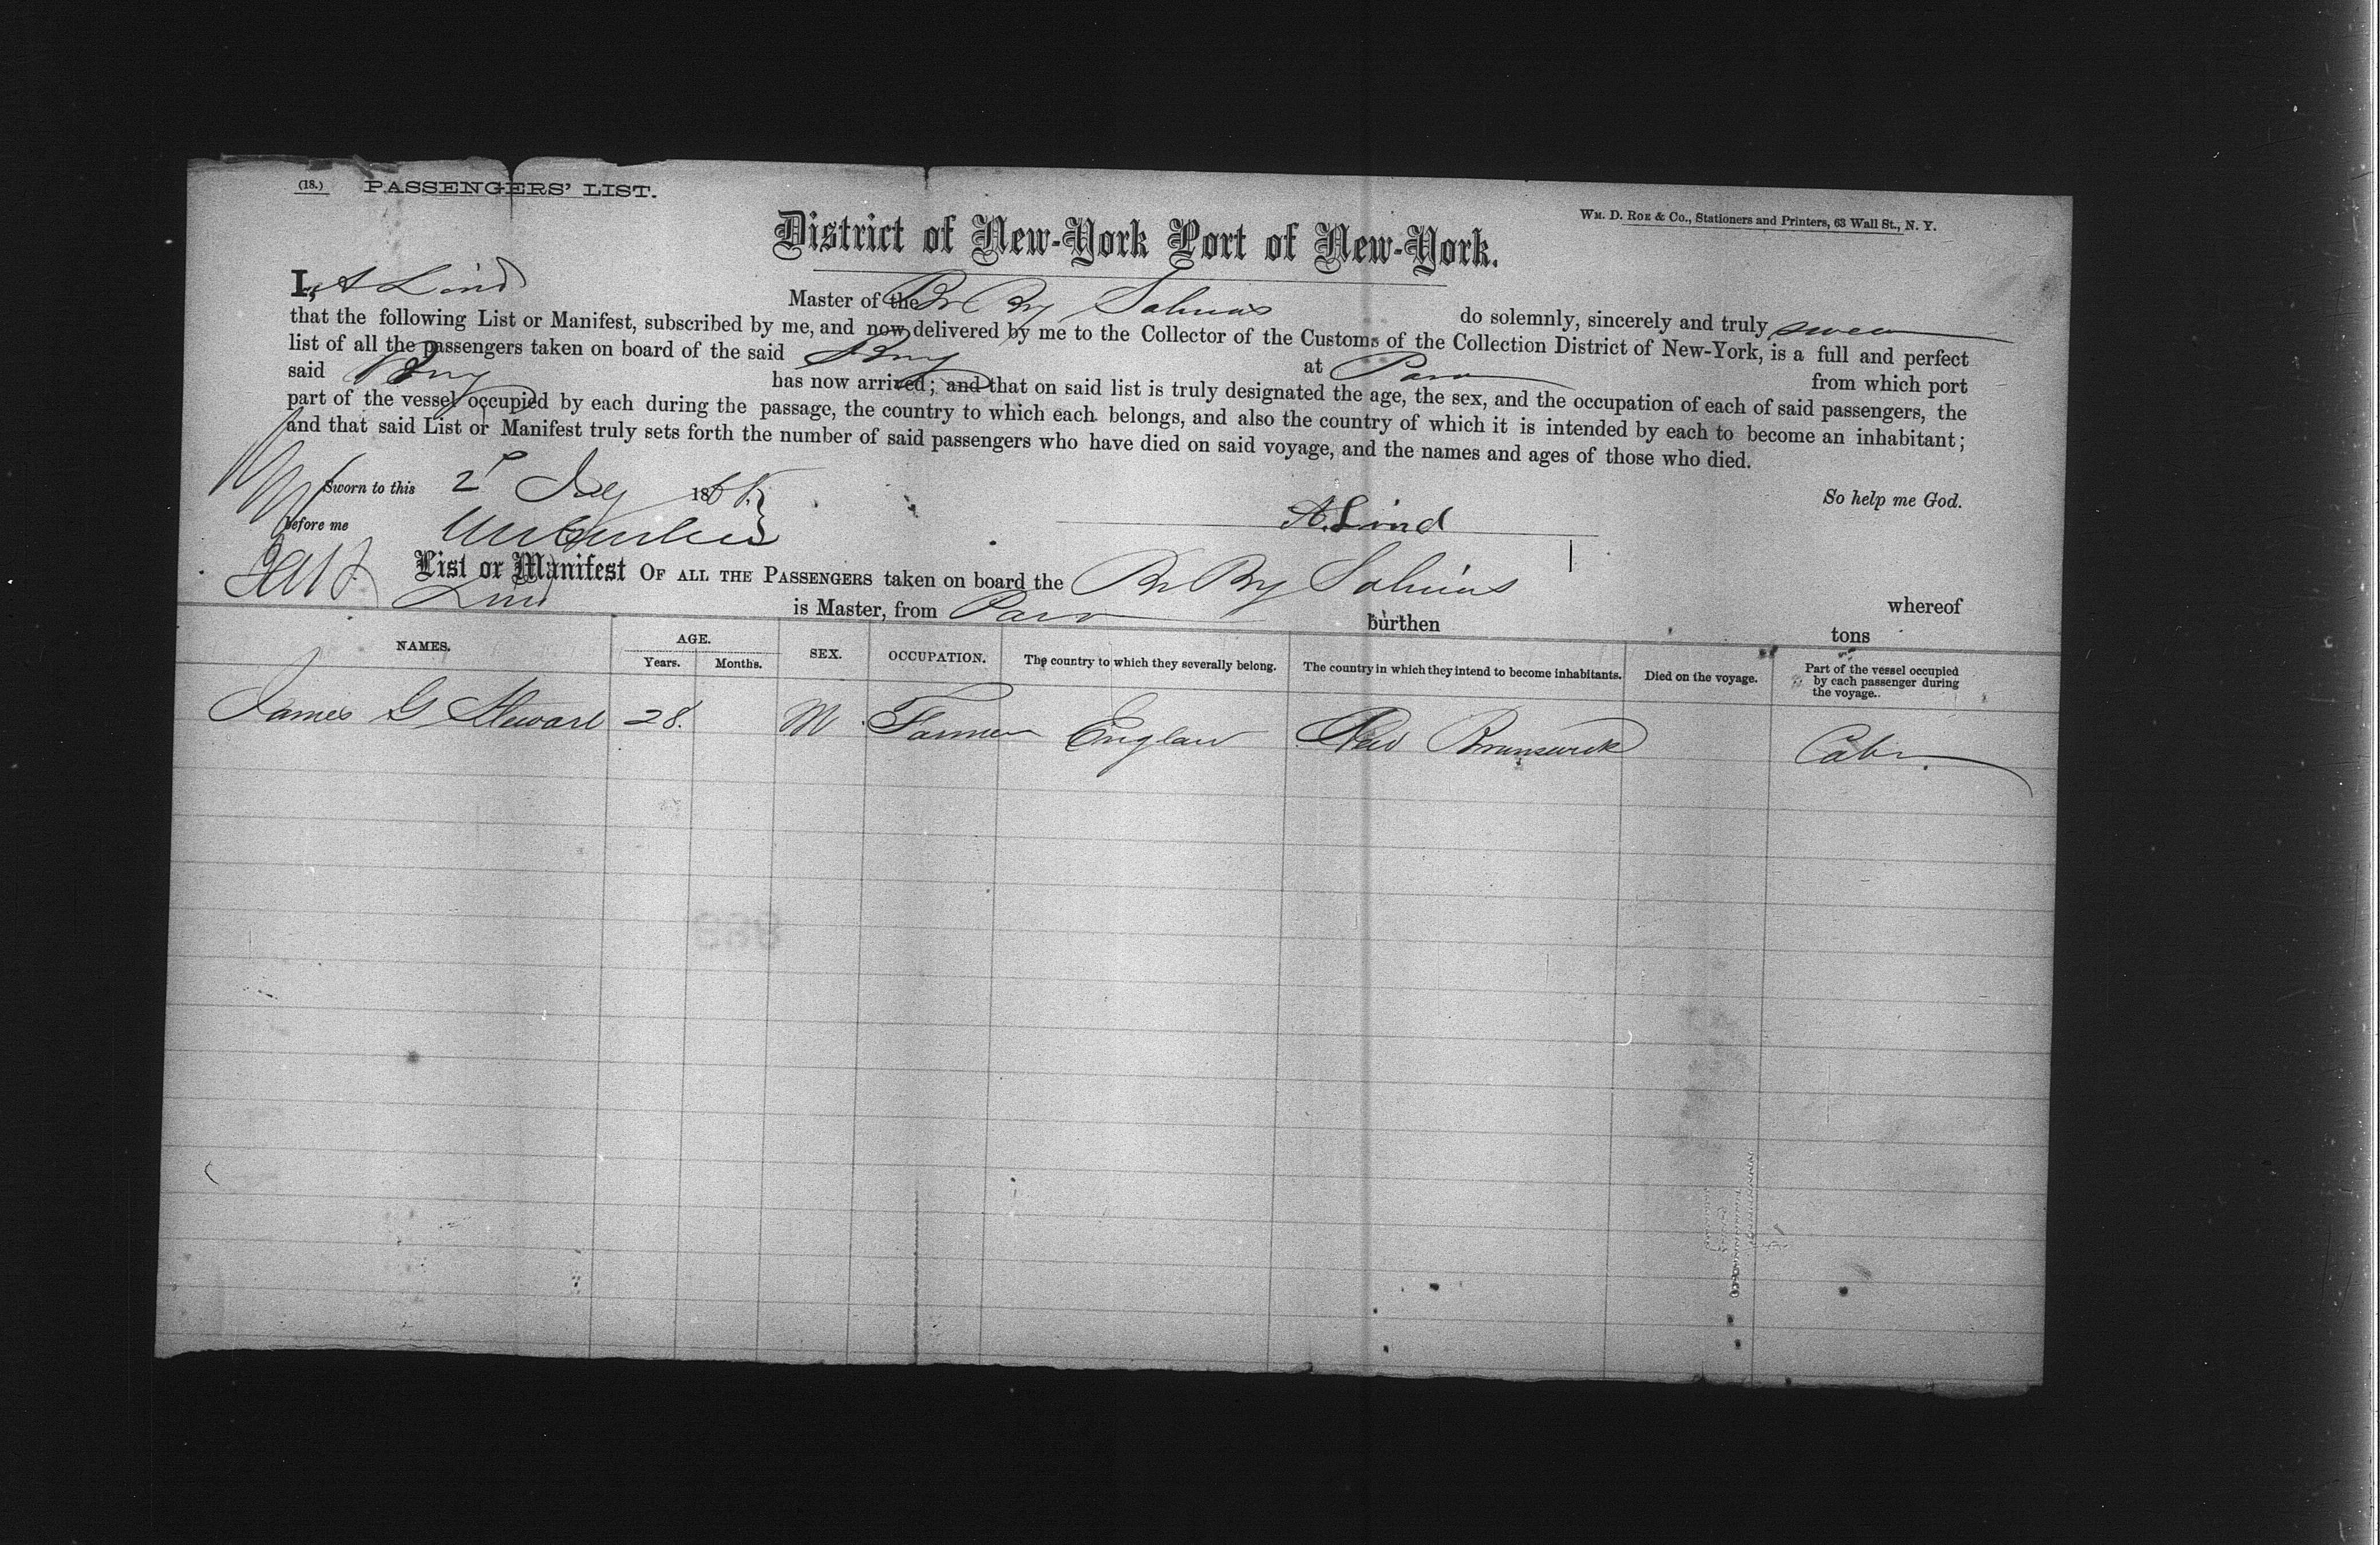 (18.) PASSENGERS' LIST.
WM. D. ROE & CO., Stationers and Printers, 63 Wall St., N. Y.
District of New-York Port of New-York.
I, A Lind Master of the Br Brg do solemnly, sincerely and truly swear
that the following List or Manifest, subscribed by me, and now delivered by me to the Collector of the Customs of the Collection District of New-York, is a full and perfect
list of all the passengers taken on board of the said Brig at Para from which port
said Brig has now arrived; and that on said list is truly designated the age, the sex, and the occupation of each of said passengers, the
part of the vessel occupied by each during the passage, the country to which each belongs, and also the country of which it is intended by each to become an inhabitant;
and that said List or Manifest truly sets forth the number of said passengers who have died on said voyage, and the names and ages of those who died.
So help me God.
Sworn to this 2d July 186
before me
A. Lind
List or Manifest OF ALL THE PASSENGERS taken on board the Br Brg whereof
Lind is Master, from Para burthen tons
NAMES. AGE. Years. Months. SEX. OCCUPATION. The country to which they severally belong. The country in which they intend to become inhabitants. Died on the voyage. Part of the vessel occupied by each passenger during the voyage.
James G Stewart 28. M Farmer England New Brunswick Cabin